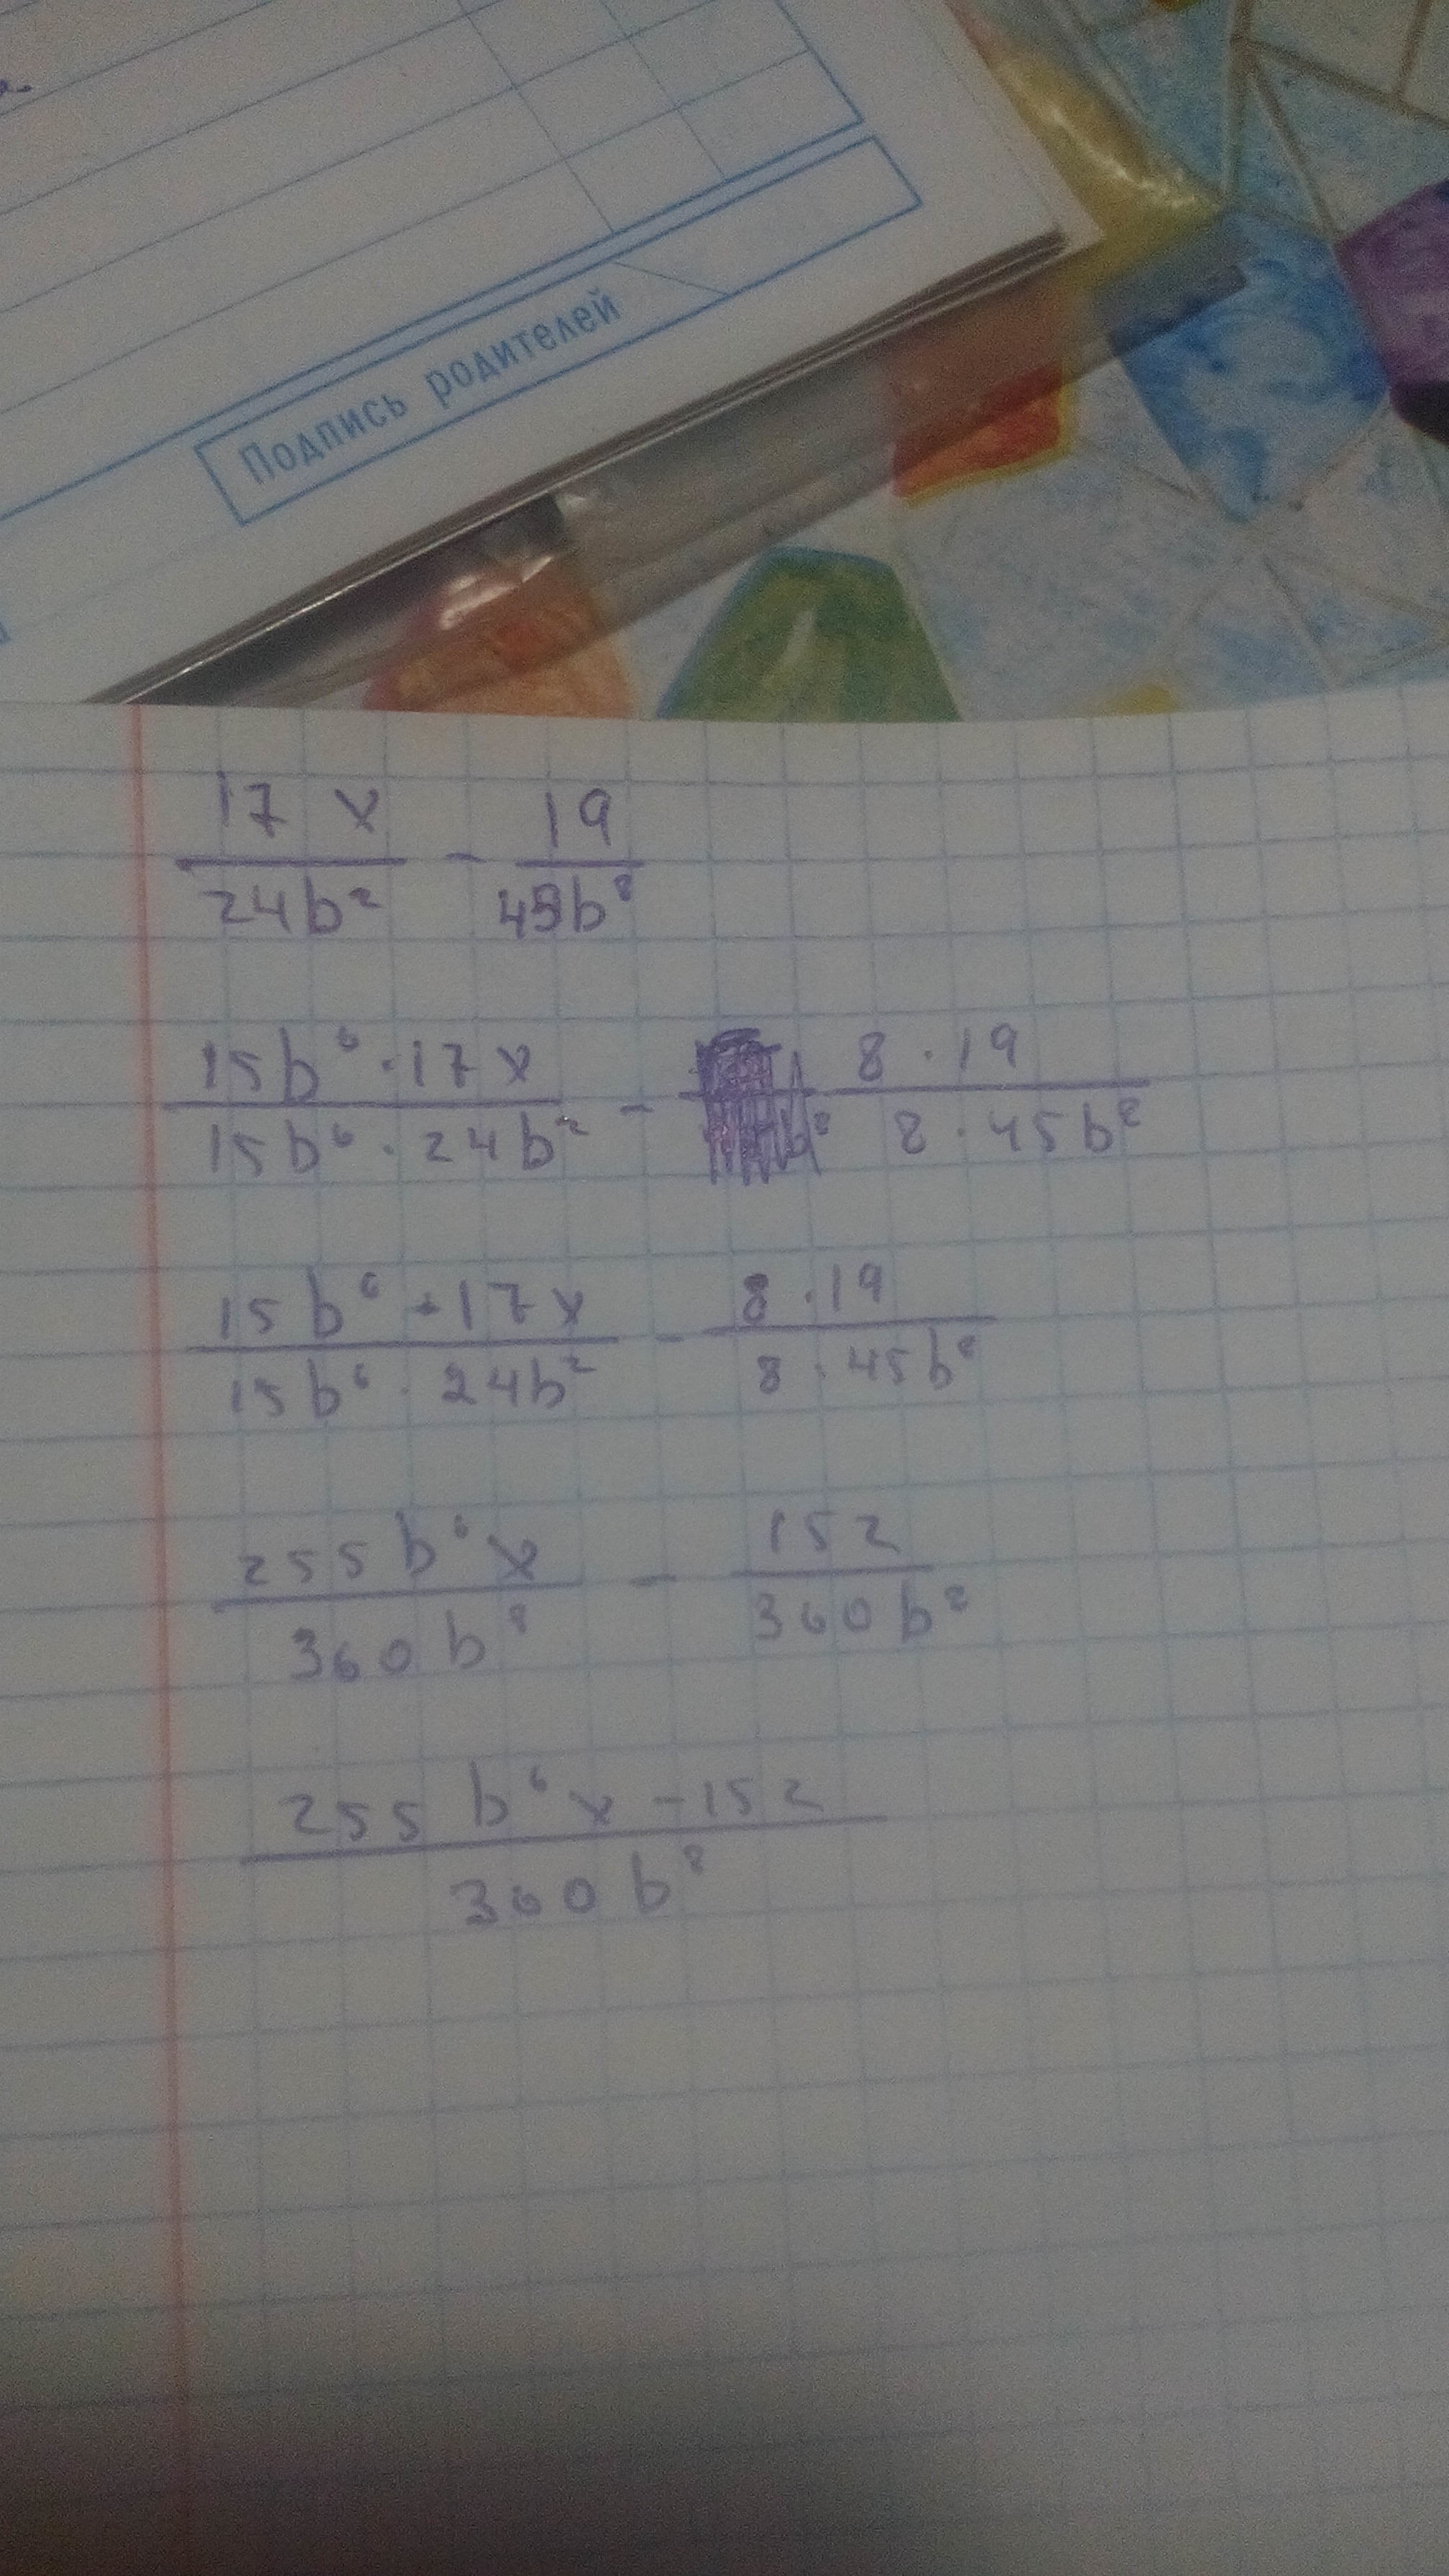 Подпись родителей
17 x / 24b² - 19 / 45b⁸
15b⁶ · 17x / 15b⁶ · 24b² - 8 · 19 / 8 · 45b⁸
15b⁶ · 17x / 15b⁶ · 24b² - 8 · 19 / 8 · 45b⁸
255b⁶x / 360b⁸ - 152 / 360b⁸
255 b⁶x - 152 / 360b⁸